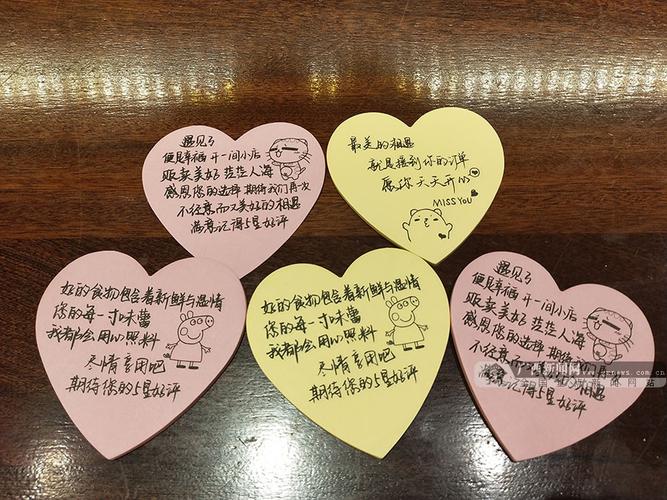 遇见了
便是幸福 开一间小店
贩卖美好 茫茫人海
感恩您的选择 期待我们再一次
不经意而又美好的相遇
满意记得5星好评
最美的相遇
就是接到你的订单
愿你天天开心
MISS YOU
好的食物包含着新鲜与温情
您的每一寸味蕾
我都会用心照料
尽情享用吧
期待您的5星好评
好的食物包含着新鲜与温情
您的每一寸味蕾
我都会用心照料
尽情享用吧
期待您的5星好评
遇见了
便是幸福 开一间小店
贩卖美好 茫茫人海
感恩您的选择 期待我们
不经意而又美好的
满意记得5星好评
广西新闻网